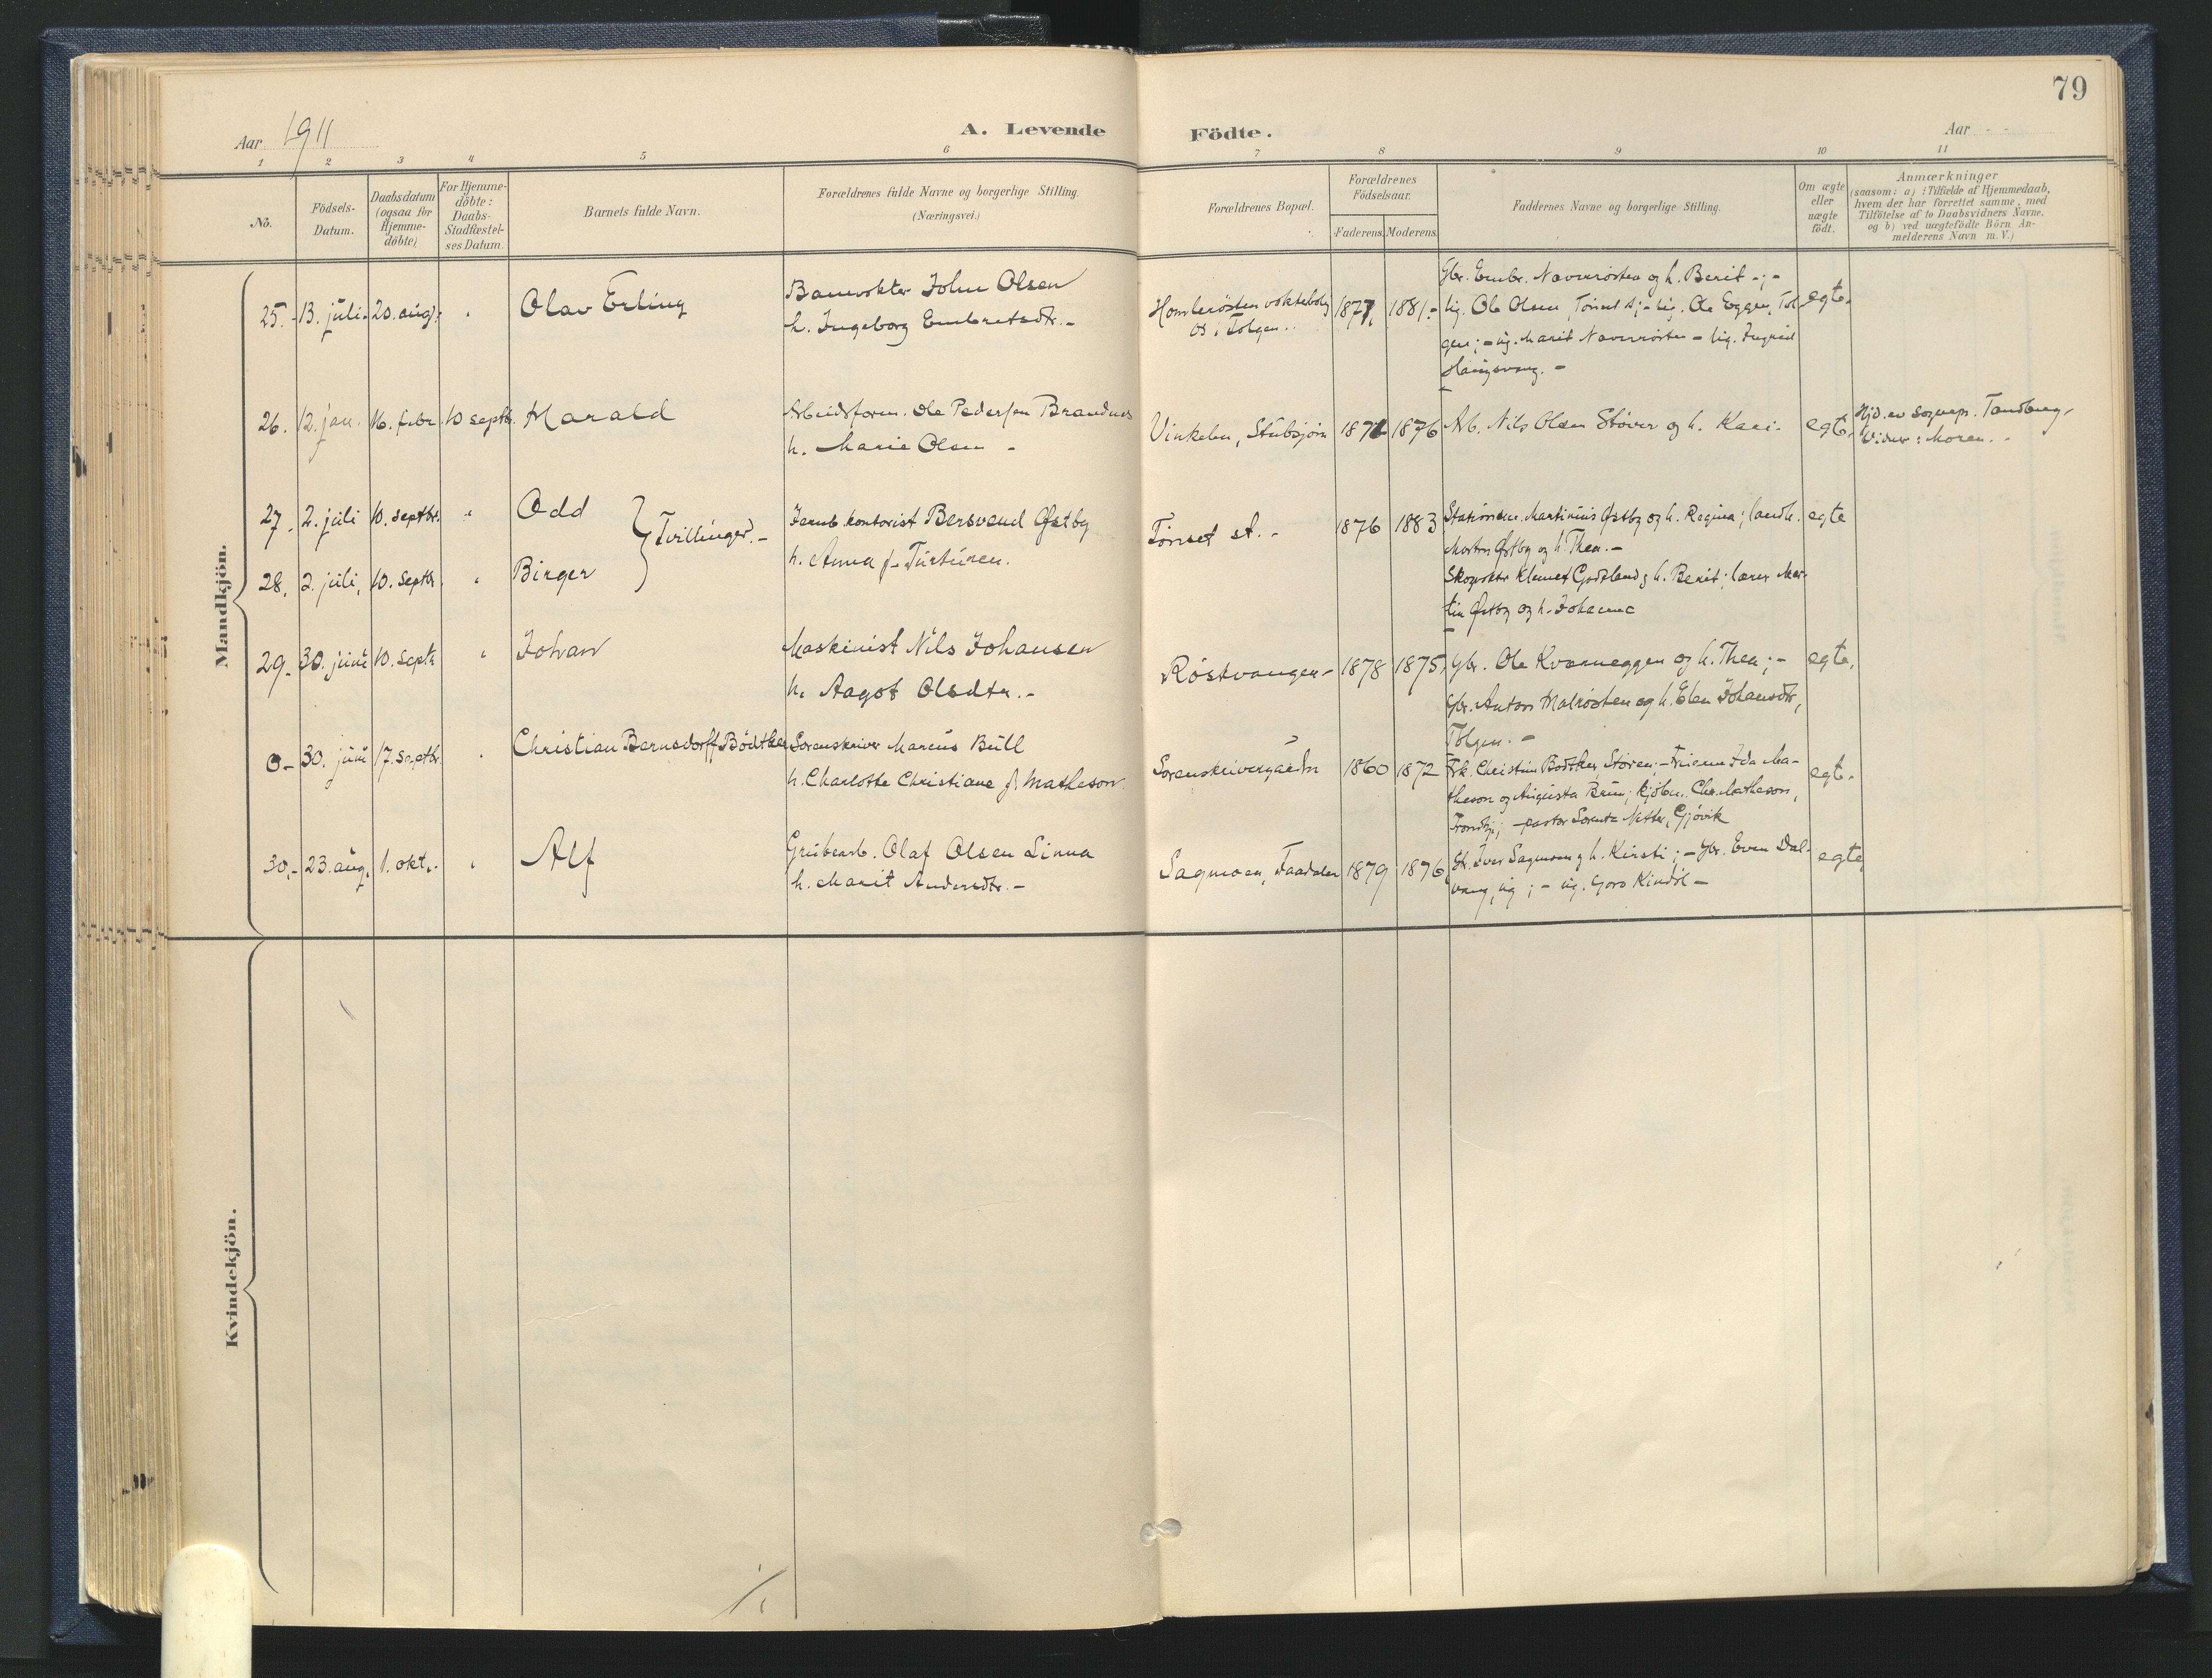 79
Aar 1911
A. Levende Födte.
Aar
1 2 3 4 5 6 7 8 9 10 11
No.
Födsels-
Datum.
Daabsdatum
(ogsaa for
Hjemme-
döbte)
For Hjemme-
döbte:
Daabs-
Stadfæstel-
ses Datum.
Barnets fulde Navn.
Forældrenes fulde Navne og borgerlige Stilling.
(Næringsvei.)
Forældrenes Bopæl.
Forældrenes
Födselsaar.
Faderens. Moderens.
Faddernes Navne og borgerlige Stilling.
Om ægte
eller
uægte
födt.
Anmærkninger
(saasom: a) i Tilfælde af Hjemmedaab,
hvem der har forrettet samme, med
Tilföielse af to Daabsvidners Navne,
og b) ved uægtefödte Börn An-
melderens Navn m. V.)
Mandkjön.
25. 13. juli. 20. aug. " Olav Erling
Banevokter John Olsen
h. Ingeborg Embretsdtr. -
Os i Tolgen.
1877, 1881.-
Gbr. Embr. Naverrösten og h. Berit -;-
Ug. Ole Olsen, Tönset st; - ug. Ole Eggen, Tol-
gen; - ug. Marit Naverrösten - ug. Ingrid
egte.
26. 12. jan. 16. febr. 10 septb. Harald
Arbeidsform. Ole Pedersen Brandnes
h. Marie Olsen -
Vinkelen, Stubsjöen 1871 1876 Arb. Nils Olsen Stöver og h. Kari. egte.
Hjd. av sognepr. Tandberg,
Vidner: Moren. -
27. 2. juli 10. septbr. " Odd
28. 2. juli, 10. septbr. " Birger
Tvillinger. -
Jernb. kontorist Bersvend Østby
h. Anna f. Turtumen.
Tönset st. - 1876 1883
Stationsm. Martinius Østby og h. Regina; landh.
Morten Østby og h. Thea. -
Skogvokter Klemet Godtland og h. Berit; lærer Mar-
tin Østby og h. Johanne
egte
29. 30. juni 10. septb. " Johan
Maskinist Nils Johansen
h. Aagot Olsdtr. -
Röstvangen - 1878 1875,
Gbr. Ole Kvarneggen og h. Thea; -
Gbr. Anton Malrösten og h. Elen Johansdtr,
Tolgen. -
egte,
0- 30. juni 17. septbr. " Christian Bernsdorff Bödtker
Sorenskriver Marcus Bull
h. Charlotte Christiane f. Matheson.
Sorenskrivergaarden 1860 1872
Frk. Christine Bödtker, Stören; - fruerne Ida Ma-
theson og Augusta Brun; kjöbm. Chr. Matheson,
Trondhj; - pastor Sorente Natter, Gjövik
egte.
30.- 23. aug. 1. okt. " Alf
Grubearb. Olaf Olsen Linna
h. Marit Andersdtr. -
Sagmoen, Faadalen 1879 1876
Gbr. Iver Sagmoen og h. Kirsti; - Gbr. Even Dal-
vang, ug; - ug. Goro Kindöl -
egte
Kvindekjön.